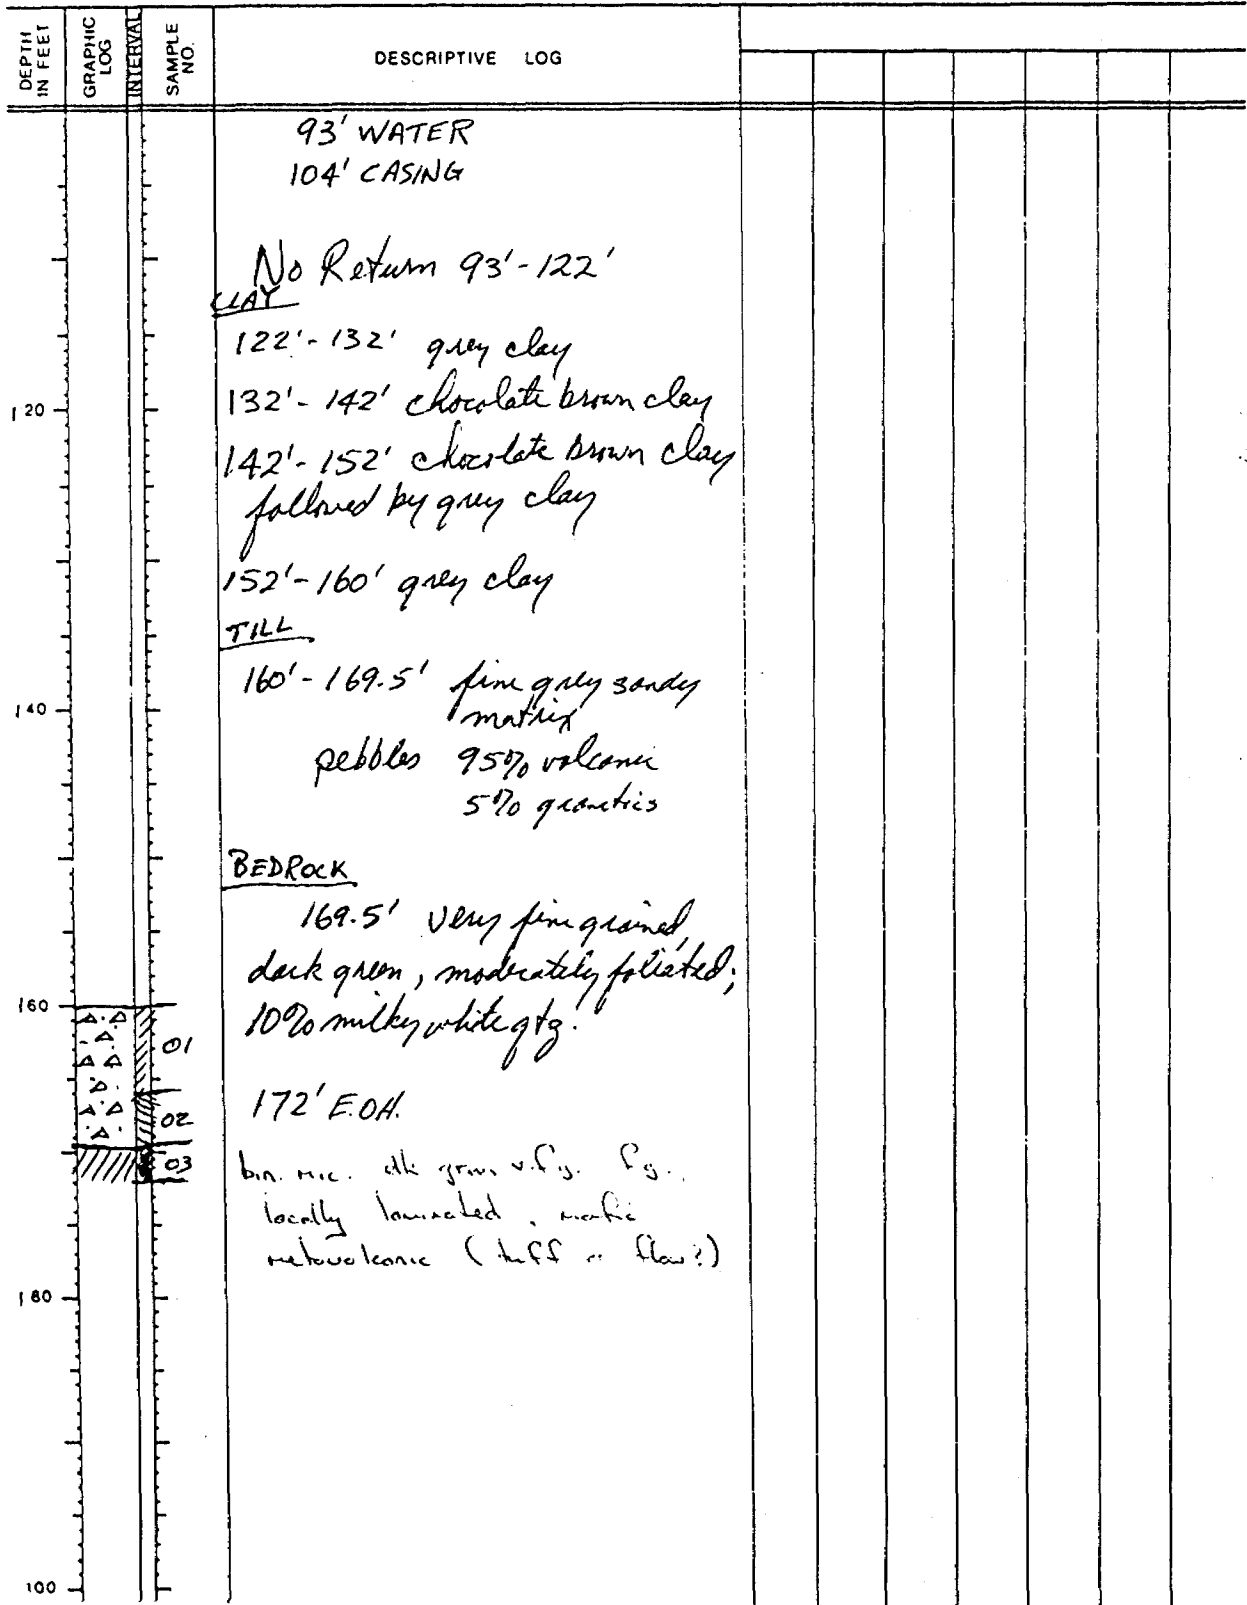 DEPTH IN FEET
GRAPHIC LOG
INTERVAL
SAMPLE NO.
DESCRIPTIVE LOG
93' WATER
104' CASING
No Return 93'-122'
CLAY
122'-132' grey clay
120
132'-142' chocolate brown clay
142'-152' chocolate brown clay
followed by grey clay
152'-160' grey clay
TILL
160'-169.5' fine grey sandy
140
matrix
pebbles 95% volcanic
5% granitics
BEDROCK
169.5' very fine grained,
dark green, moderately foliated;
160
10% milky white qtz.
01
172' E.O.H.
02
03
bin. mic. dk green v.f.g. f.g.
locally laminated, mafic
metavolcanic (tuff or flow?)
180
100